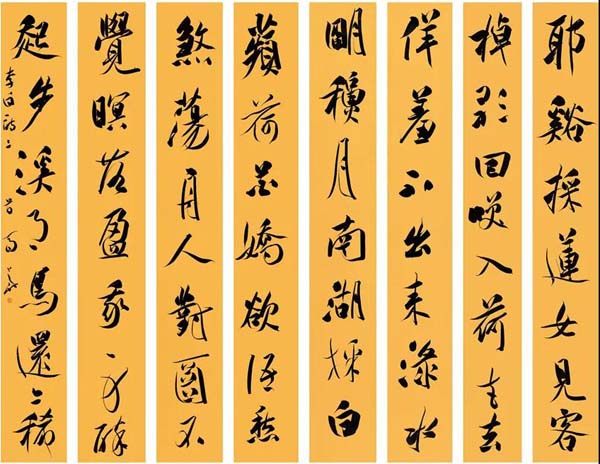 耶谿採蓮女見客
棹歌回咲入荷花去
佯羞不出来渌水
明穐月南湖採白
蘋荷花嬌欲語愁
煞蕩舟人對酒不
覺暝落盈我衣醉
起步溪月鳥還人稀
李白詩